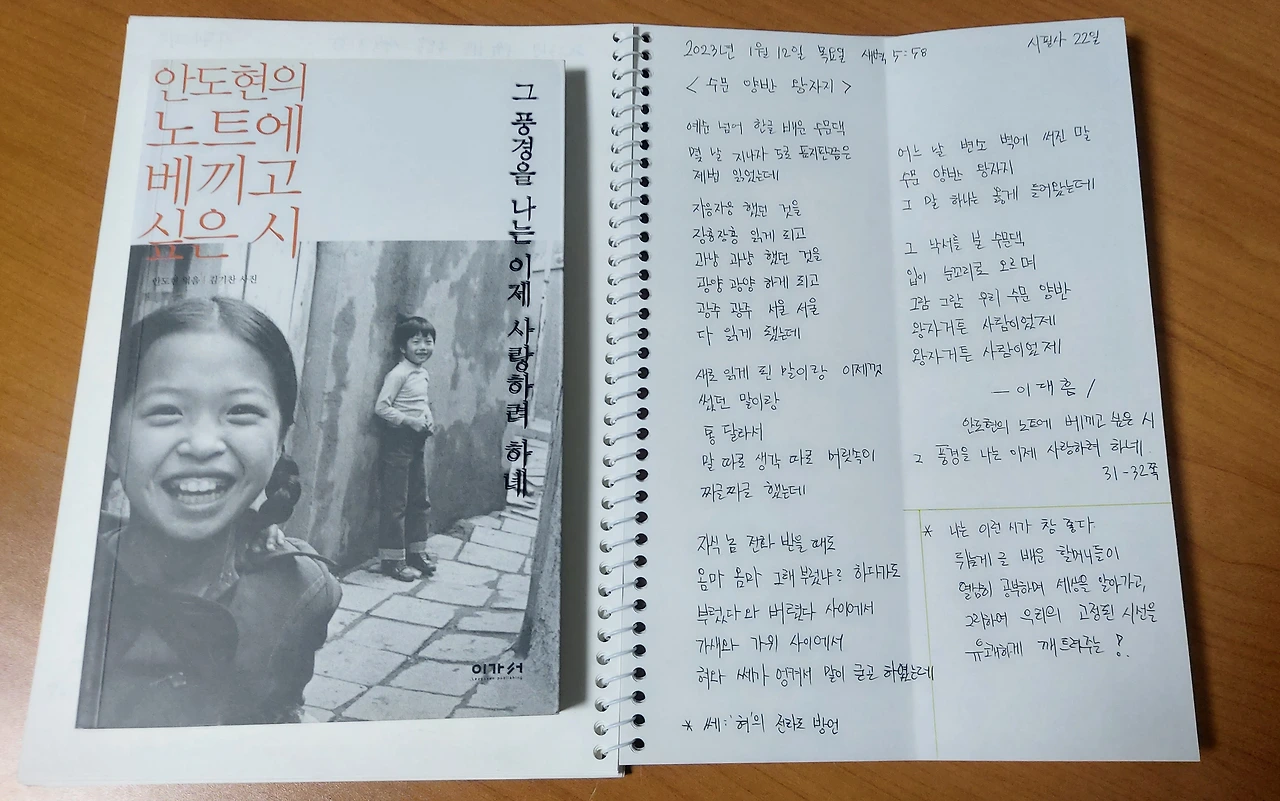 안도현의
노트에
베끼고
싶은 시
안도현 엮음 | 김기찬 사진
그 풍경을 나는 이제 사랑하려 하네
이가서
2023년 1월 12일 목요일 새벽 5:58
시필사 22일
< 수문 양반 왕자지 >
예순 넘어 한글 배운 수문댁
몇 날 지나자 도로 표지판쯤은
제법 읽었는데
자응자응 했던 것을
장흥장흥 읽게 되고
과냥 과냥 했던 것을
광양 광양 하게 되고
광주 광주 서울 서울
다 읽게 됐는데
새로 읽게 된 말이랑 이제껏
썼던 말이랑
통 달라서
말 따로 생각 따로 머릿속이
짜글짜글 했는데
자식 놈 전화 받을 때도
옴마 옴마 그래 부렀냐? 하다가도
부렀다와 버렸다 사이에서
가새와 가위 사이에서
혀와 쎄가 엉켜서 말이 굳곤 하였는데
* 쎄 : '혀'의 전라도 방언
어느 날 변소 벽에 써진 말
수문 양반 왕자지
그 말 하나는 옳게 들어왔는데
그 낙서를 본 수문댁
입이 눈꼬리로 오르며
그람 그람 우리 수문 양반
왕자거튼 사람이었제
왕자거튼 사람이었제
— 이대흠 /
안도현의 노트에 베끼고 싶은 시
그 풍경을 나는 이제 사랑하려 하네.
31-32쪽
* 나는 이런 시가 참 좋다.
뒤늦게 글 배운 할머니들이
열심히 공부하며 세상을 알아가고,
그리하여 우리의 고정된 시선을
유쾌하게 깨트려주는 !